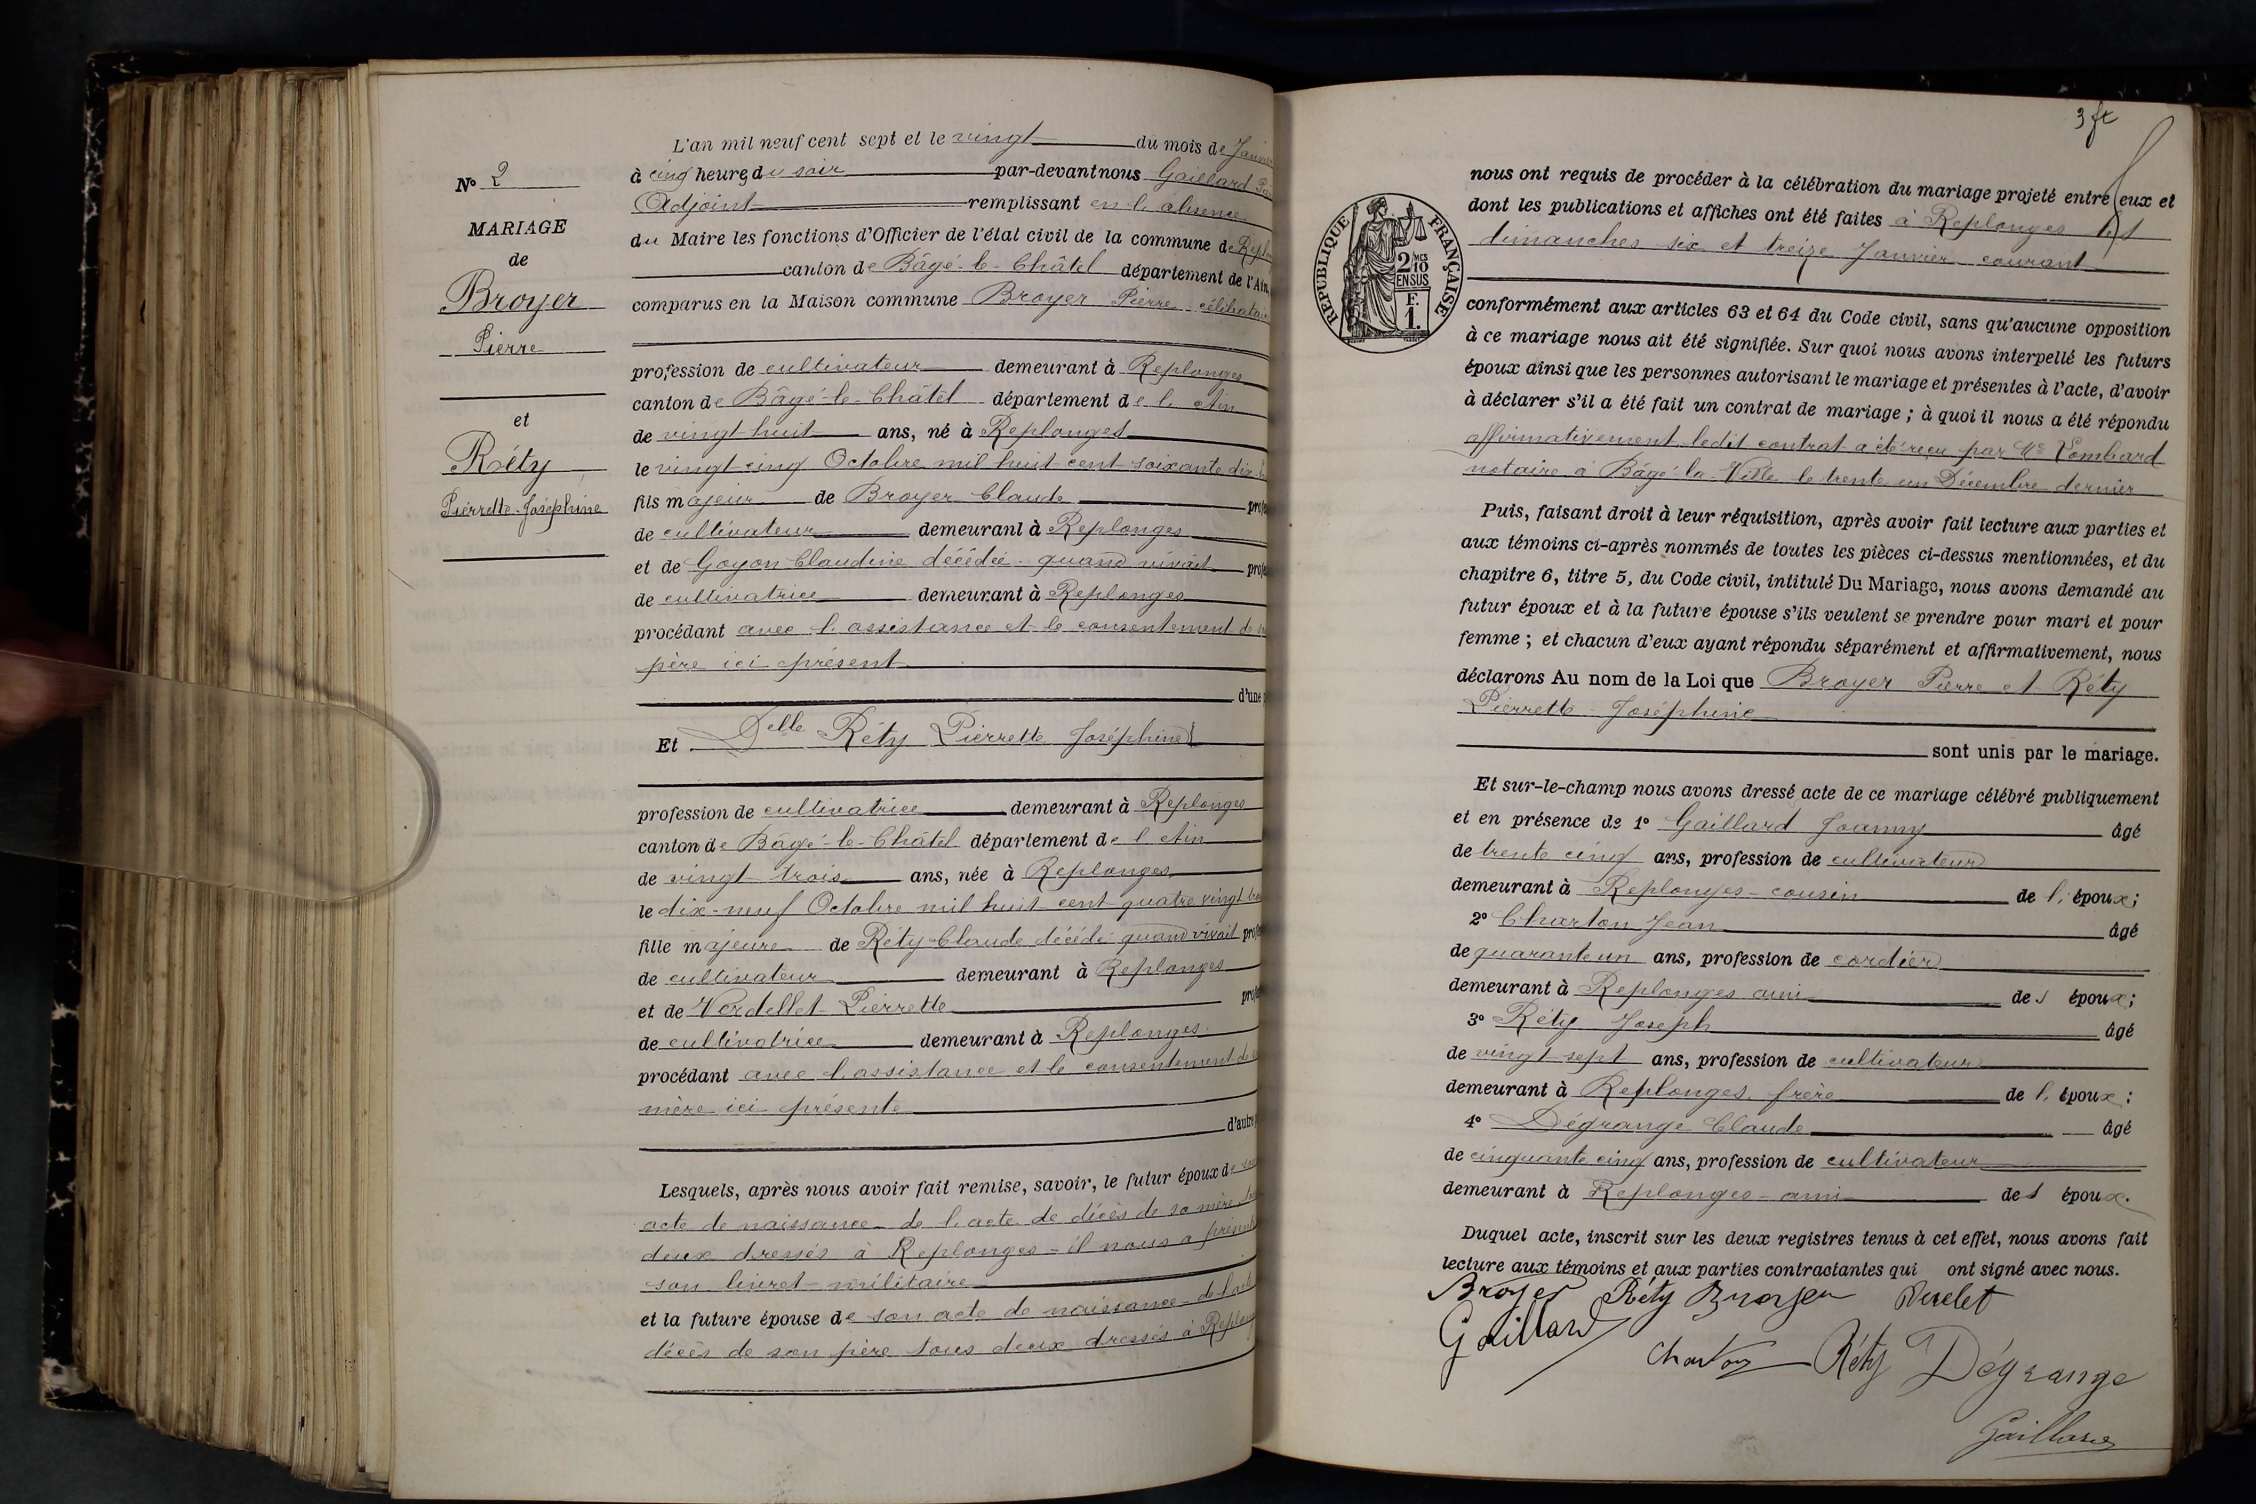 L'an mil neuf cent sept et le vingt du mois de Janvier
à cinq heures du soir par-devant nous Gaillard
Adjoint remplissant en l'absence
du Maire les fonctions d'Officier de l'état civil de la commune de Repl
canton de Bâgé-le-Châtel département de l'Ain,
comparus en la Maison commune Broyer Pierre célibataire
profession de cultivateur demeurant à Replonges
canton de Bâgé-le-Châtel département de l'Ain
de vingt huit ans, né à Replonges
le vingt cinq Octobre mil huit cent soixante dix-h
fils majeur de Broyer Claude profe
de cultivateur demeurant à Replonges
et de Goyon Claudine décédée quand vivait profe
de cultivatrice demeurant à Replonges
procédant avec l'assistance et le consentement de
père ici présent
d'une p
Et Delle Réty Pierrette Joséphine
profession de cultivatrice demeurant à Replonges
canton de Bâgé-le-Châtel département de l'Ain
de vingt trois ans, née à Replonges
le dix-neuf Octobre mil huit cent quatre vingt tro
fille majeure de Réty Claude décédé quand vivait profe
de cultivateur demeurant à Replonges
et de Verdellet Pierrette profe
de cultivatrice demeurant à Replonges
procédant avec l'assistance et le consentement de
mère ici présente
d'autre
Lesquels, après nous avoir fait remise, savoir, le futur époux de son
acte de naissance - de l'acte de décès de sa mère
deux dressés à Replonges - il nous a présent
son livret militaire
et la future épouse de son acte de naissance - de l'acte
décès de son père tous deux dressés à Replong
No 2
MARIAGE
de
Broyer
Pierre
et
Réty
Pierrette-Joséphine
3 ft
RÉPUBLIQUE FRANÇAISE
2 MES
10
EN SUS
F.
1.
nous ont requis de procéder à la célébration du mariage projeté entre eux et
dont les publications et affiches ont été faites à Replonges les
dimanches six et treize Janvier courant
conformément aux articles 63 et 64 du Code civil, sans qu'aucune opposition
à ce mariage nous ait été signifiée. Sur quoi nous avons interpellé les futurs
époux ainsi que les personnes autorisant le mariage et présentes à l'acte, d'avoir
à déclarer s'il a été fait un contrat de mariage ; à quoi il nous a été répondu
affirmativement ledit contrat a été reçu par Me Lombard
notaire à Bâgé-la-Ville le trente un Décembre dernier
Puis, faisant droit à leur réquisition, après avoir fait lecture aux parties et
aux témoins ci-après nommés de toutes les pièces ci-dessus mentionnées, et du
chapitre 6, titre 5, du Code civil, intitulé Du Mariage, nous avons demandé au
futur époux et à la future épouse s'ils veulent se prendre pour mari et pour
femme ; et chacun d'eux ayant répondu séparément et affirmativement, nous
déclarons Au nom de la Loi que Broyer Pierre et Réty
Pierrette-Joséphine
sont unis par le mariage.
Et sur-le-champ nous avons dressé acte de ce mariage célébré publiquement
et en présence de 1° Gaillard Joanny âgé
de trente cinq ans, profession de cultivateur
demeurant à Replonges - cousin de l'époux ;
2° Charton Jean âgé
de quarante un ans, profession de cordier
demeurant à Replonges ami des époux ;
3° Réty Joseph âgé
de vingt sept ans, profession de cultivateur
demeurant à Replonges frère de l'époux ;
4° Dégrange Claude âgé
de cinquante cinq ans, profession de cultivateur
demeurant à Replonges - ami des époux.
Duquel acte, inscrit sur les deux registres tenus à cet effet, nous avons fait
lecture aux témoins et aux parties contractantes qui ont signé avec nous.
Broyer Réty Broyer
Gaillard
Charton Réty Dégrange
Gaillard